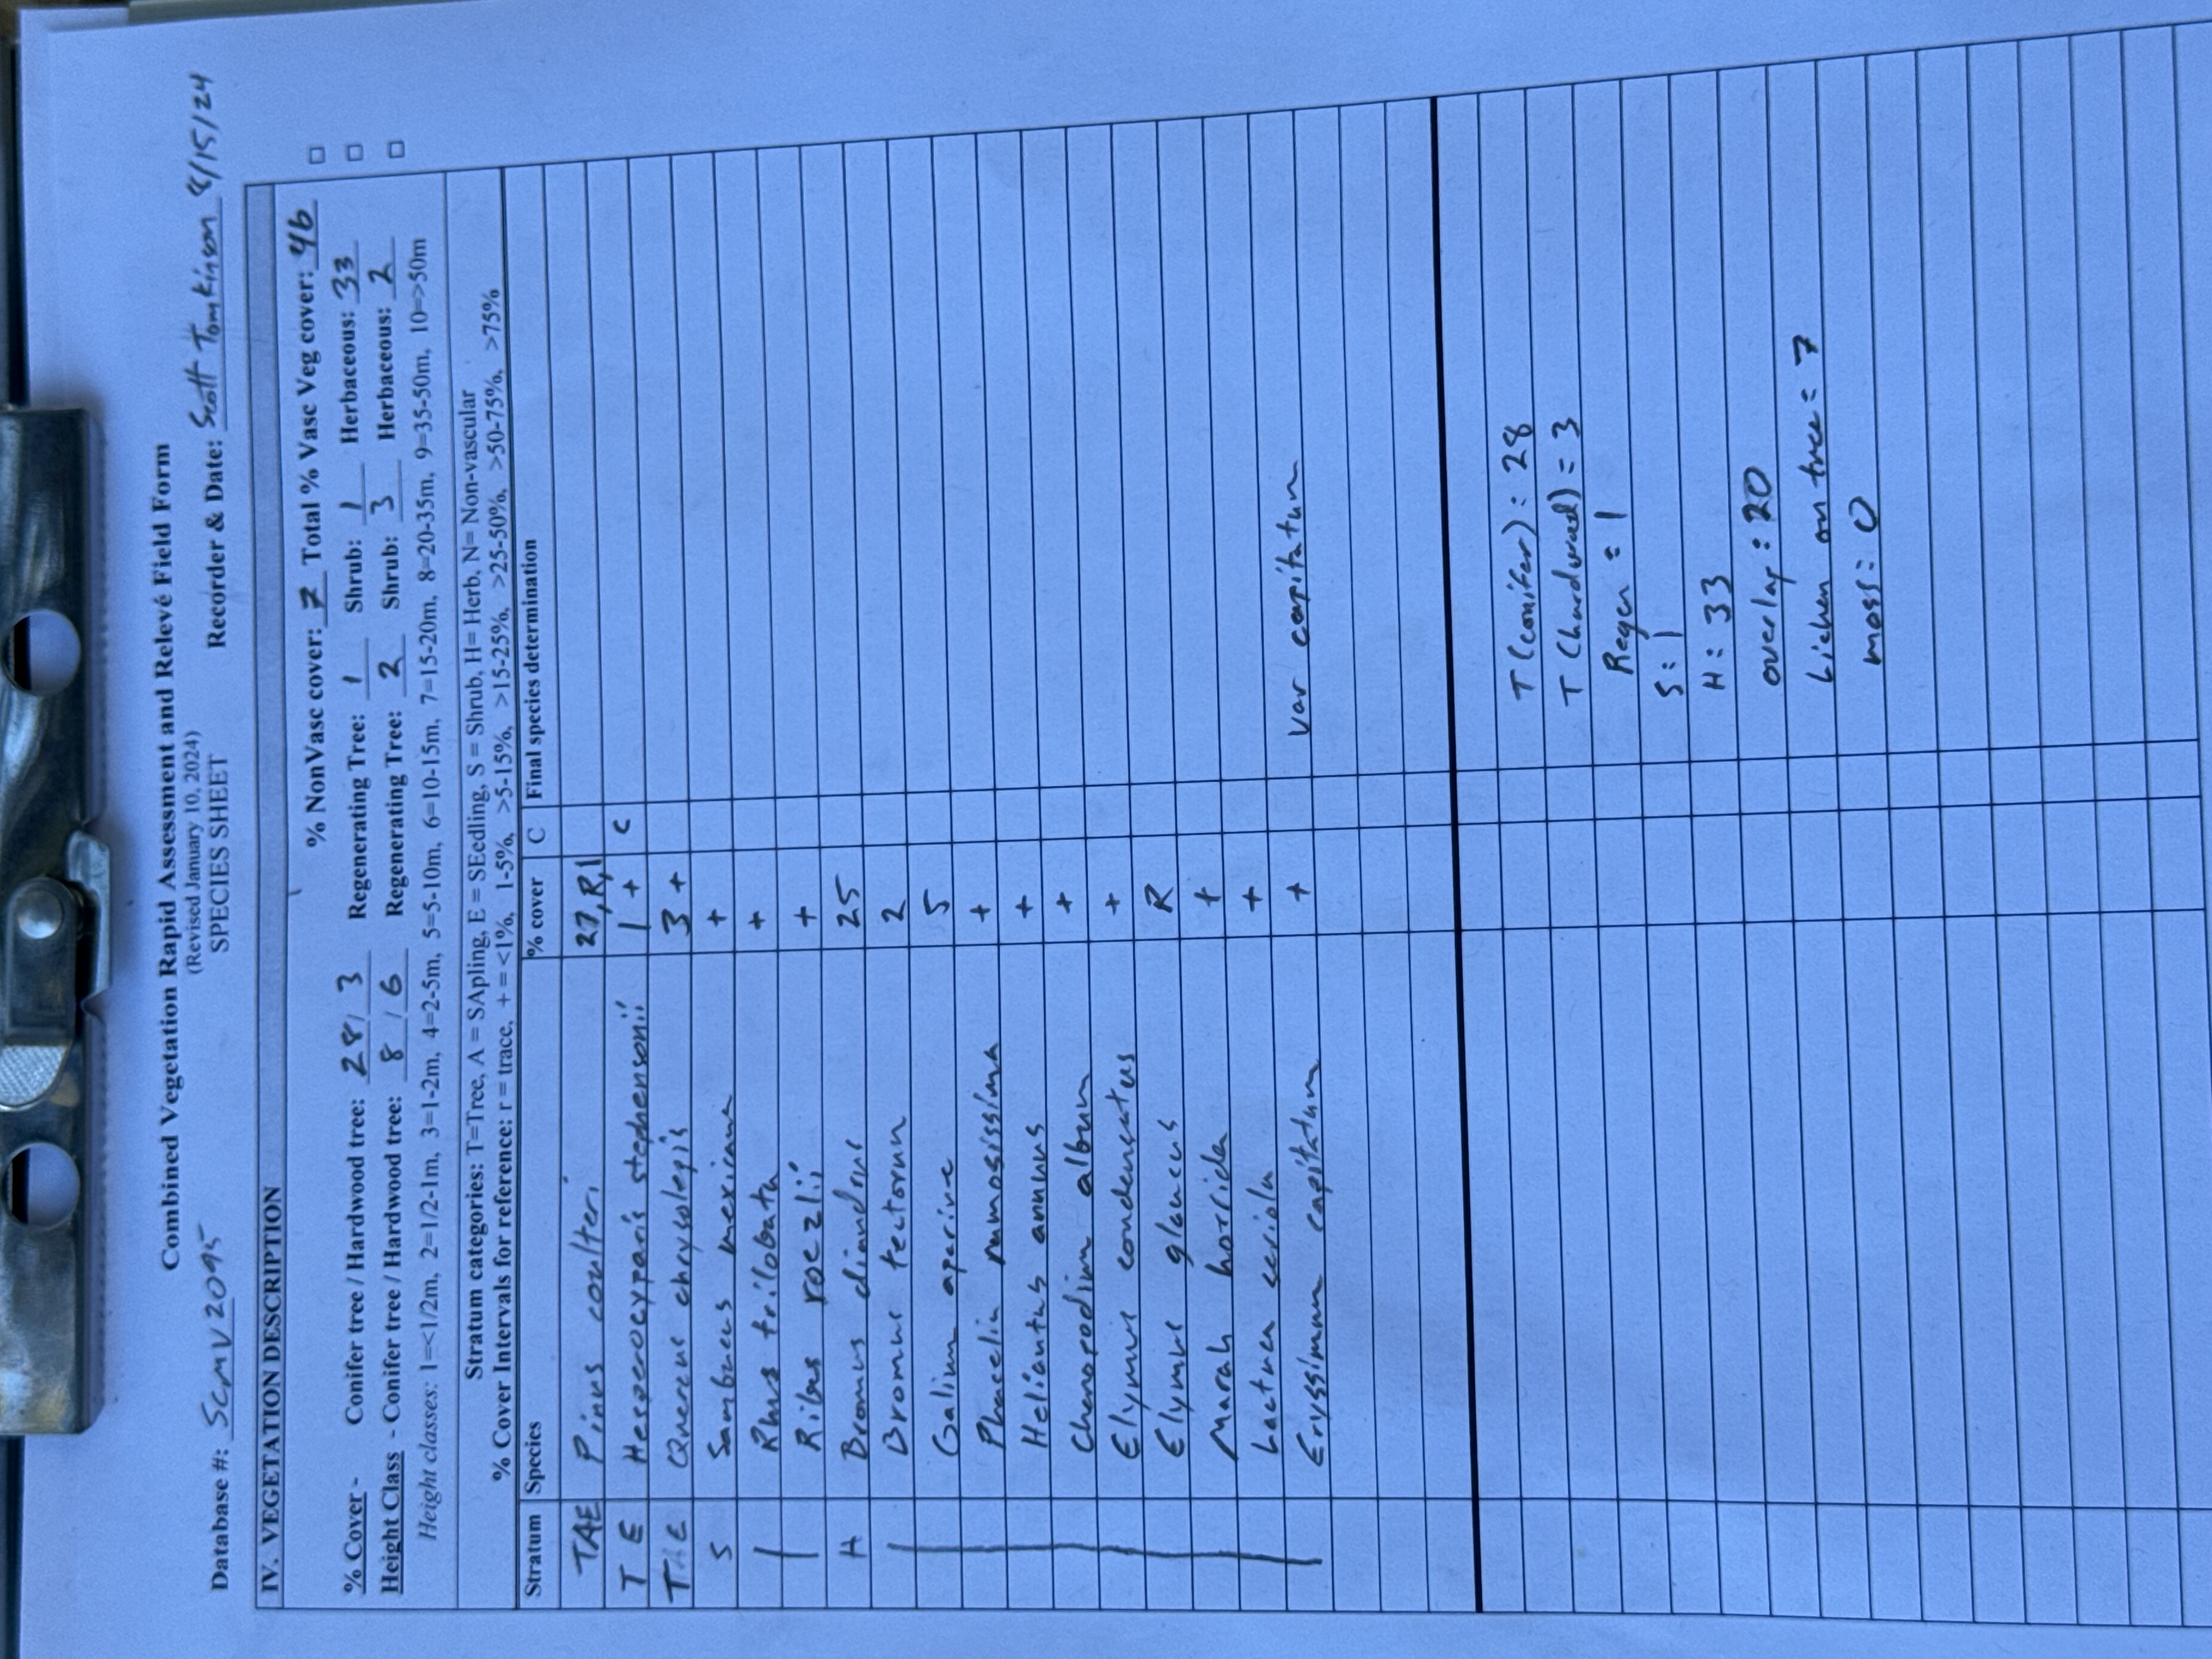 Combined Vegetation Rapid Assessment and Relevé Field Form
(Revised January 10, 2024)
Database #: SCMV2095 SPECIES SHEET Recorder & Date: Scott Tomkinson 8/15/24
IV. VEGETATION DESCRIPTION
% NonVasc cover: 7 Total % Vasc Veg cover: 46 □
% Cover - Conifer tree / Hardwood tree: 28 / 3 Regenerating Tree: 1 Shrub: 1 Herbaceous: 33 □
Height Class - Conifer tree / Hardwood tree: 8 / 6 Regenerating Tree: 2 Shrub: 3 Herbaceous: 2 □
Height classes: 1=<1/2m, 2=1/2-1m, 3=1-2m, 4=2-5m, 5=5-10m, 6=10-15m, 7=15-20m, 8=20-35m, 9=35-50m, 10=>50m
Stratum categories: T=Tree, A = SApling, E = SEedling, S = Shrub, H= Herb, N= Non-vascular
% Cover Intervals for reference: r = trace, + = <1%, 1-5%, >5-15%, >15-25%, >25-50%, >50-75%, >75%
Stratum Species % cover C Final species determination
TAE Pinus coulteri 27,R,1
T E Hesperocyparis stephensonii 1 + C
T E Quercus chrysolepis 3 +
S Sambucus mexicana +
Rhus trilobata +
Ribes roezlii +
H Bromus diandrus 25
Bromus tectorum 2
Galium aparine 5
Phacelia ramosissima +
Heliantus annuus +
Chenopodium album +
Elymus condensatus +
Elymus glaucus R
Marah horrida +
Lactuca seriola +
Eryssimum capitatum + var capitatum
T (conifer): 28
T (hardwood) = 3
Regen = 1
S: 1
H: 33
overlap: 20
Lichen on tree = 7
moss: 0